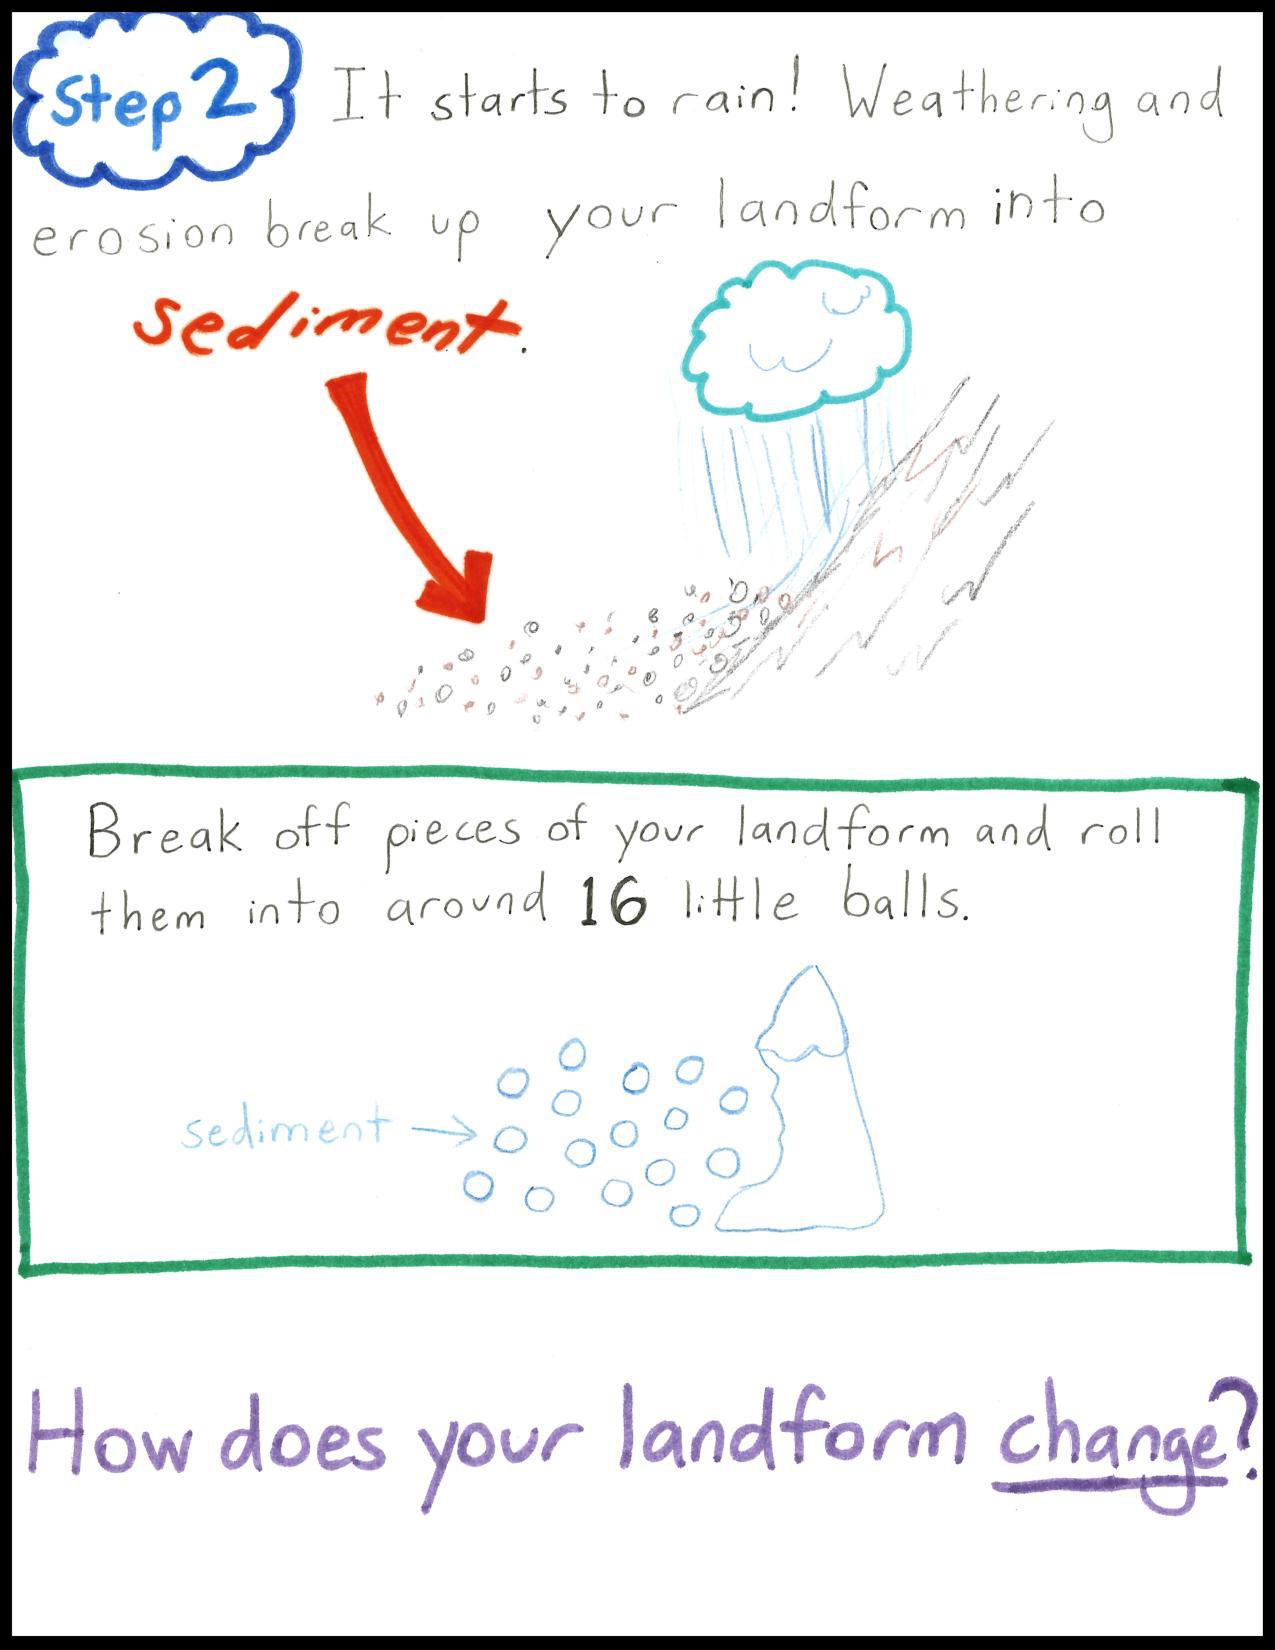 Step 2
It starts to rain! Weathering and
erosion break up your landform into
sediment.
Break off pieces of your landform and roll
them into around 16 little balls.
sediment
How does your landform change?